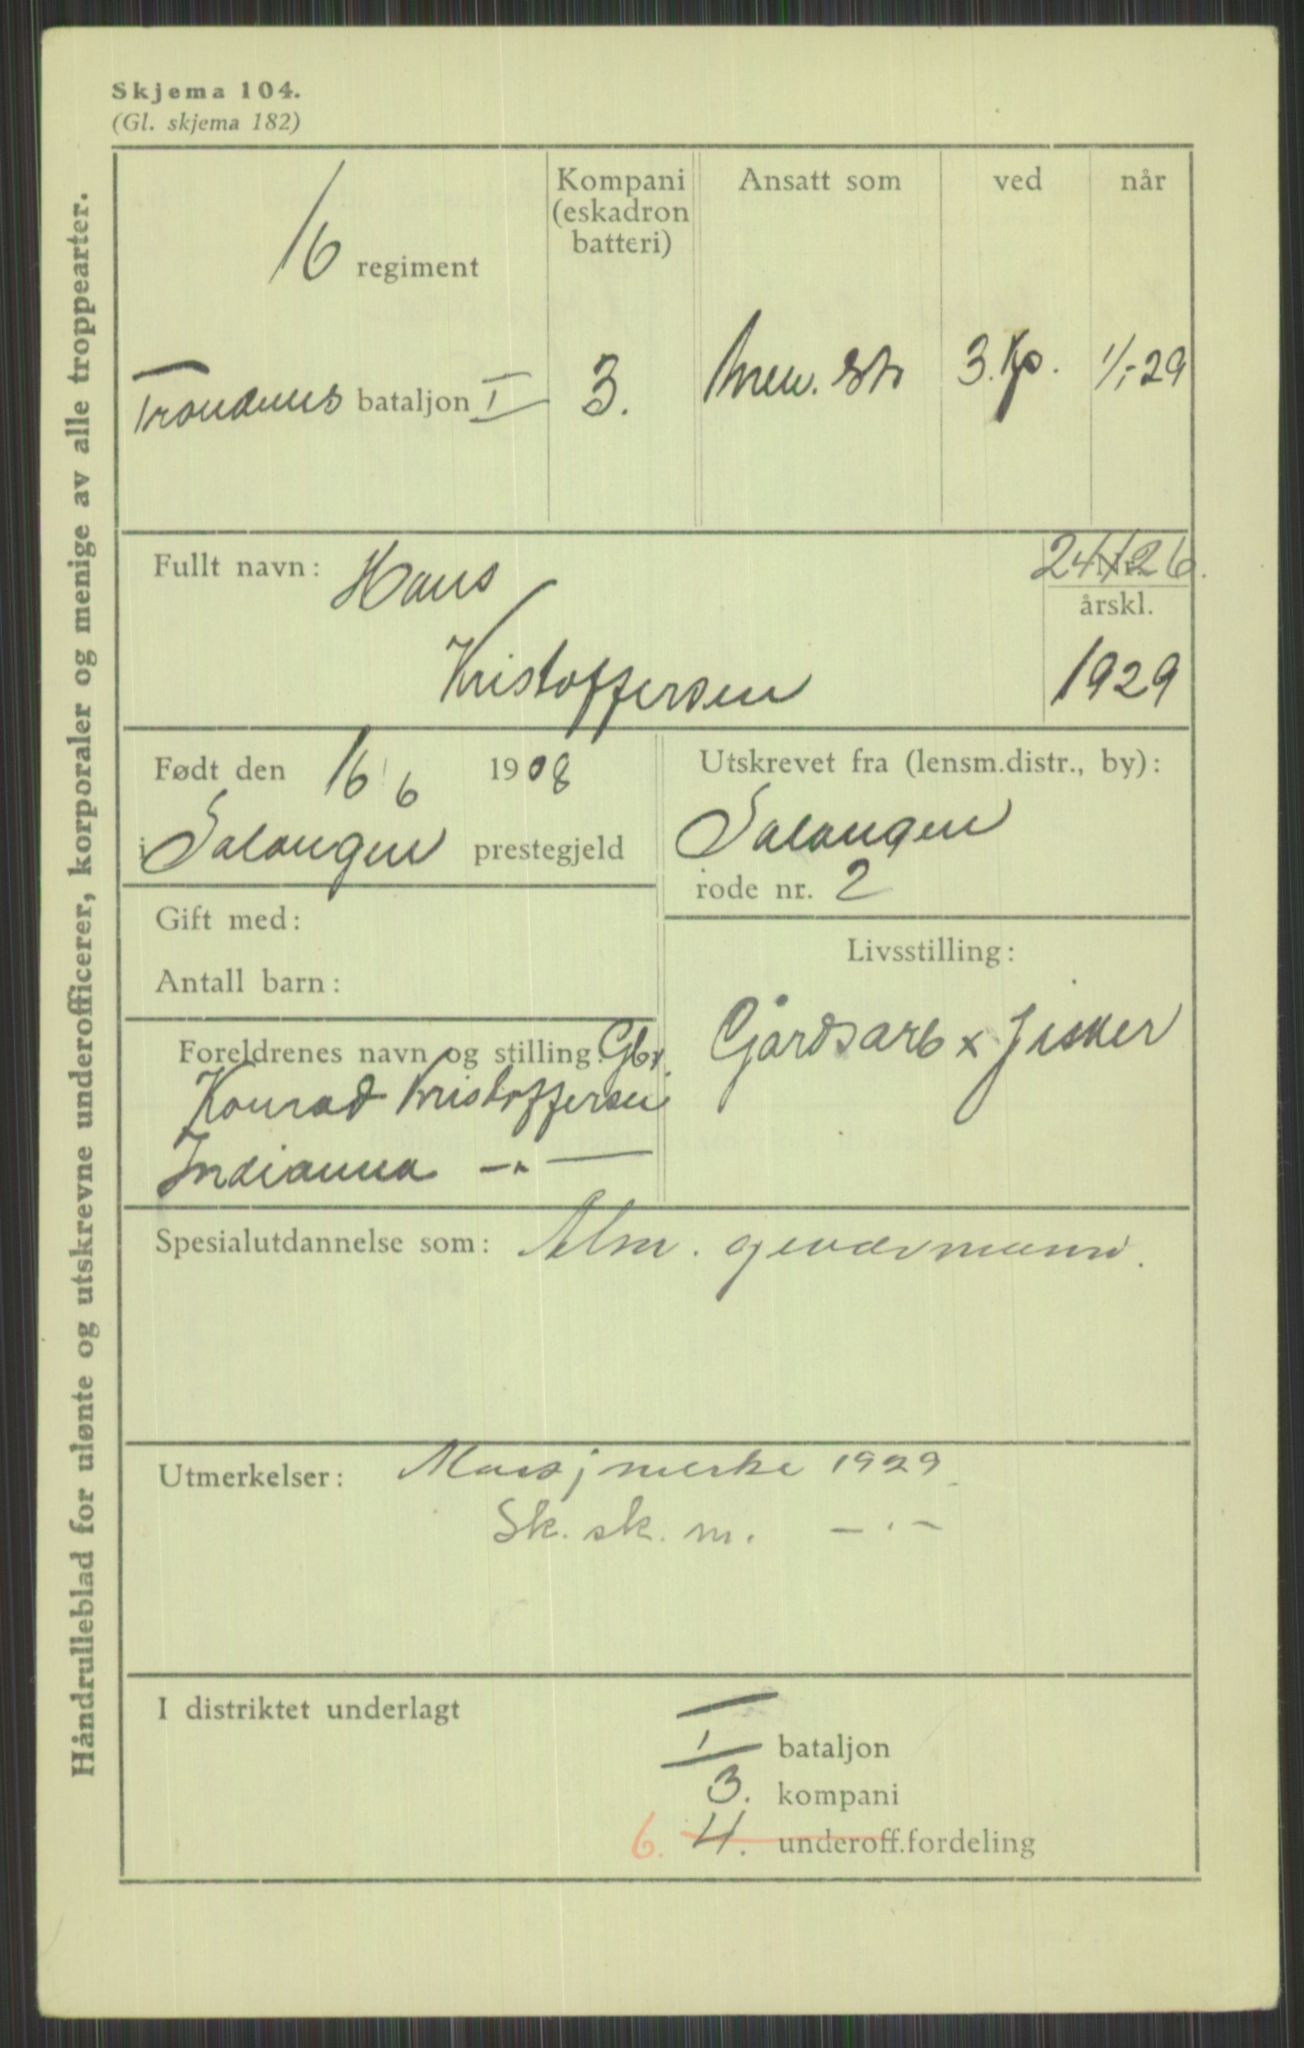 Skjema 104.
(Gl. skjema 182)
Håndrulleblad for ulønte og utskrevne underofficerer, korporaler og menige av alle troppearter.
16 regiment
Trondenes bataljon I
Kompani
(eskadron
batteri)
3.
Ansatt som
ved
3. Kp.
når
1/1-29
Fullt navn: Hans
Kristoffersen
24/126.
årskl.
1929
Født den 16/6 1908
i Salangen prestegjeld
Utskrevet fra (lensm.distr., by):
Salangen
rode nr. 2
Gift med:
Antall barn:
Livsstilling:
Gårdsarb x fisker
Foreldrenes navn og stilling: Gbr.
Konrad Kristoffersen
Indianna -"-
Spesialutdannelse som: Alm. geværmann.
Utmerkelser: Marsjmerke 1929.
Sk. sk. m. -"-
I distriktet underlagt
I bataljon
3. kompani
6. 4. underoff.fordeling